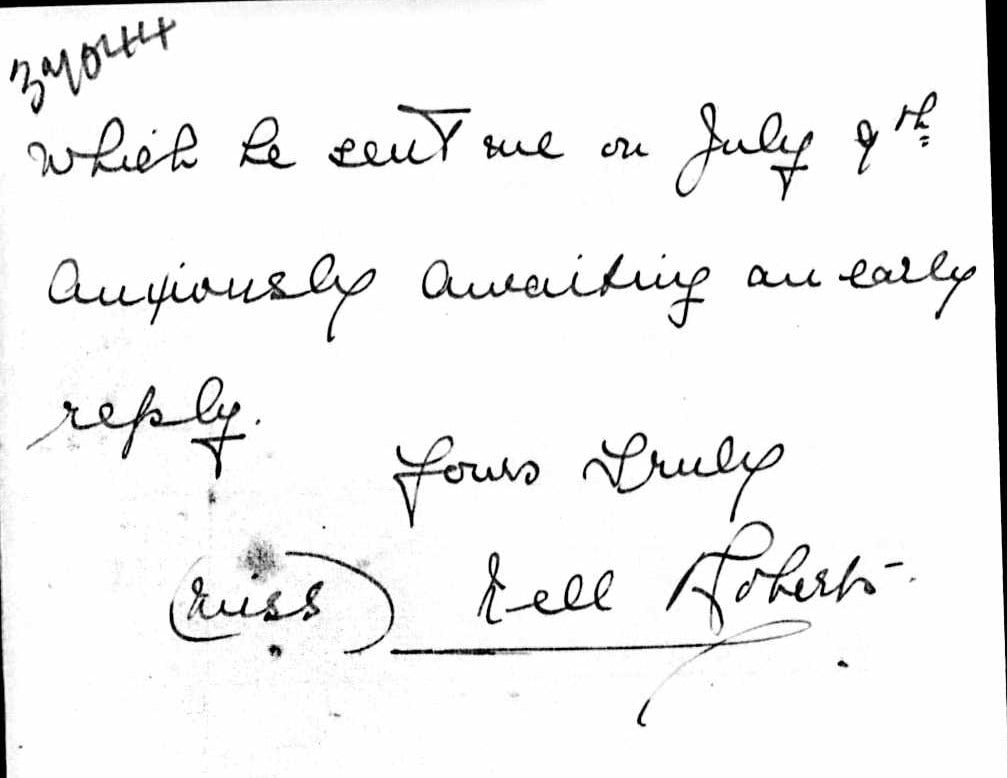 39044
which he sent me on July 9th
Anxiously awaiting an early
reply.
Yours Truly
(Miss) Nell Roberts.